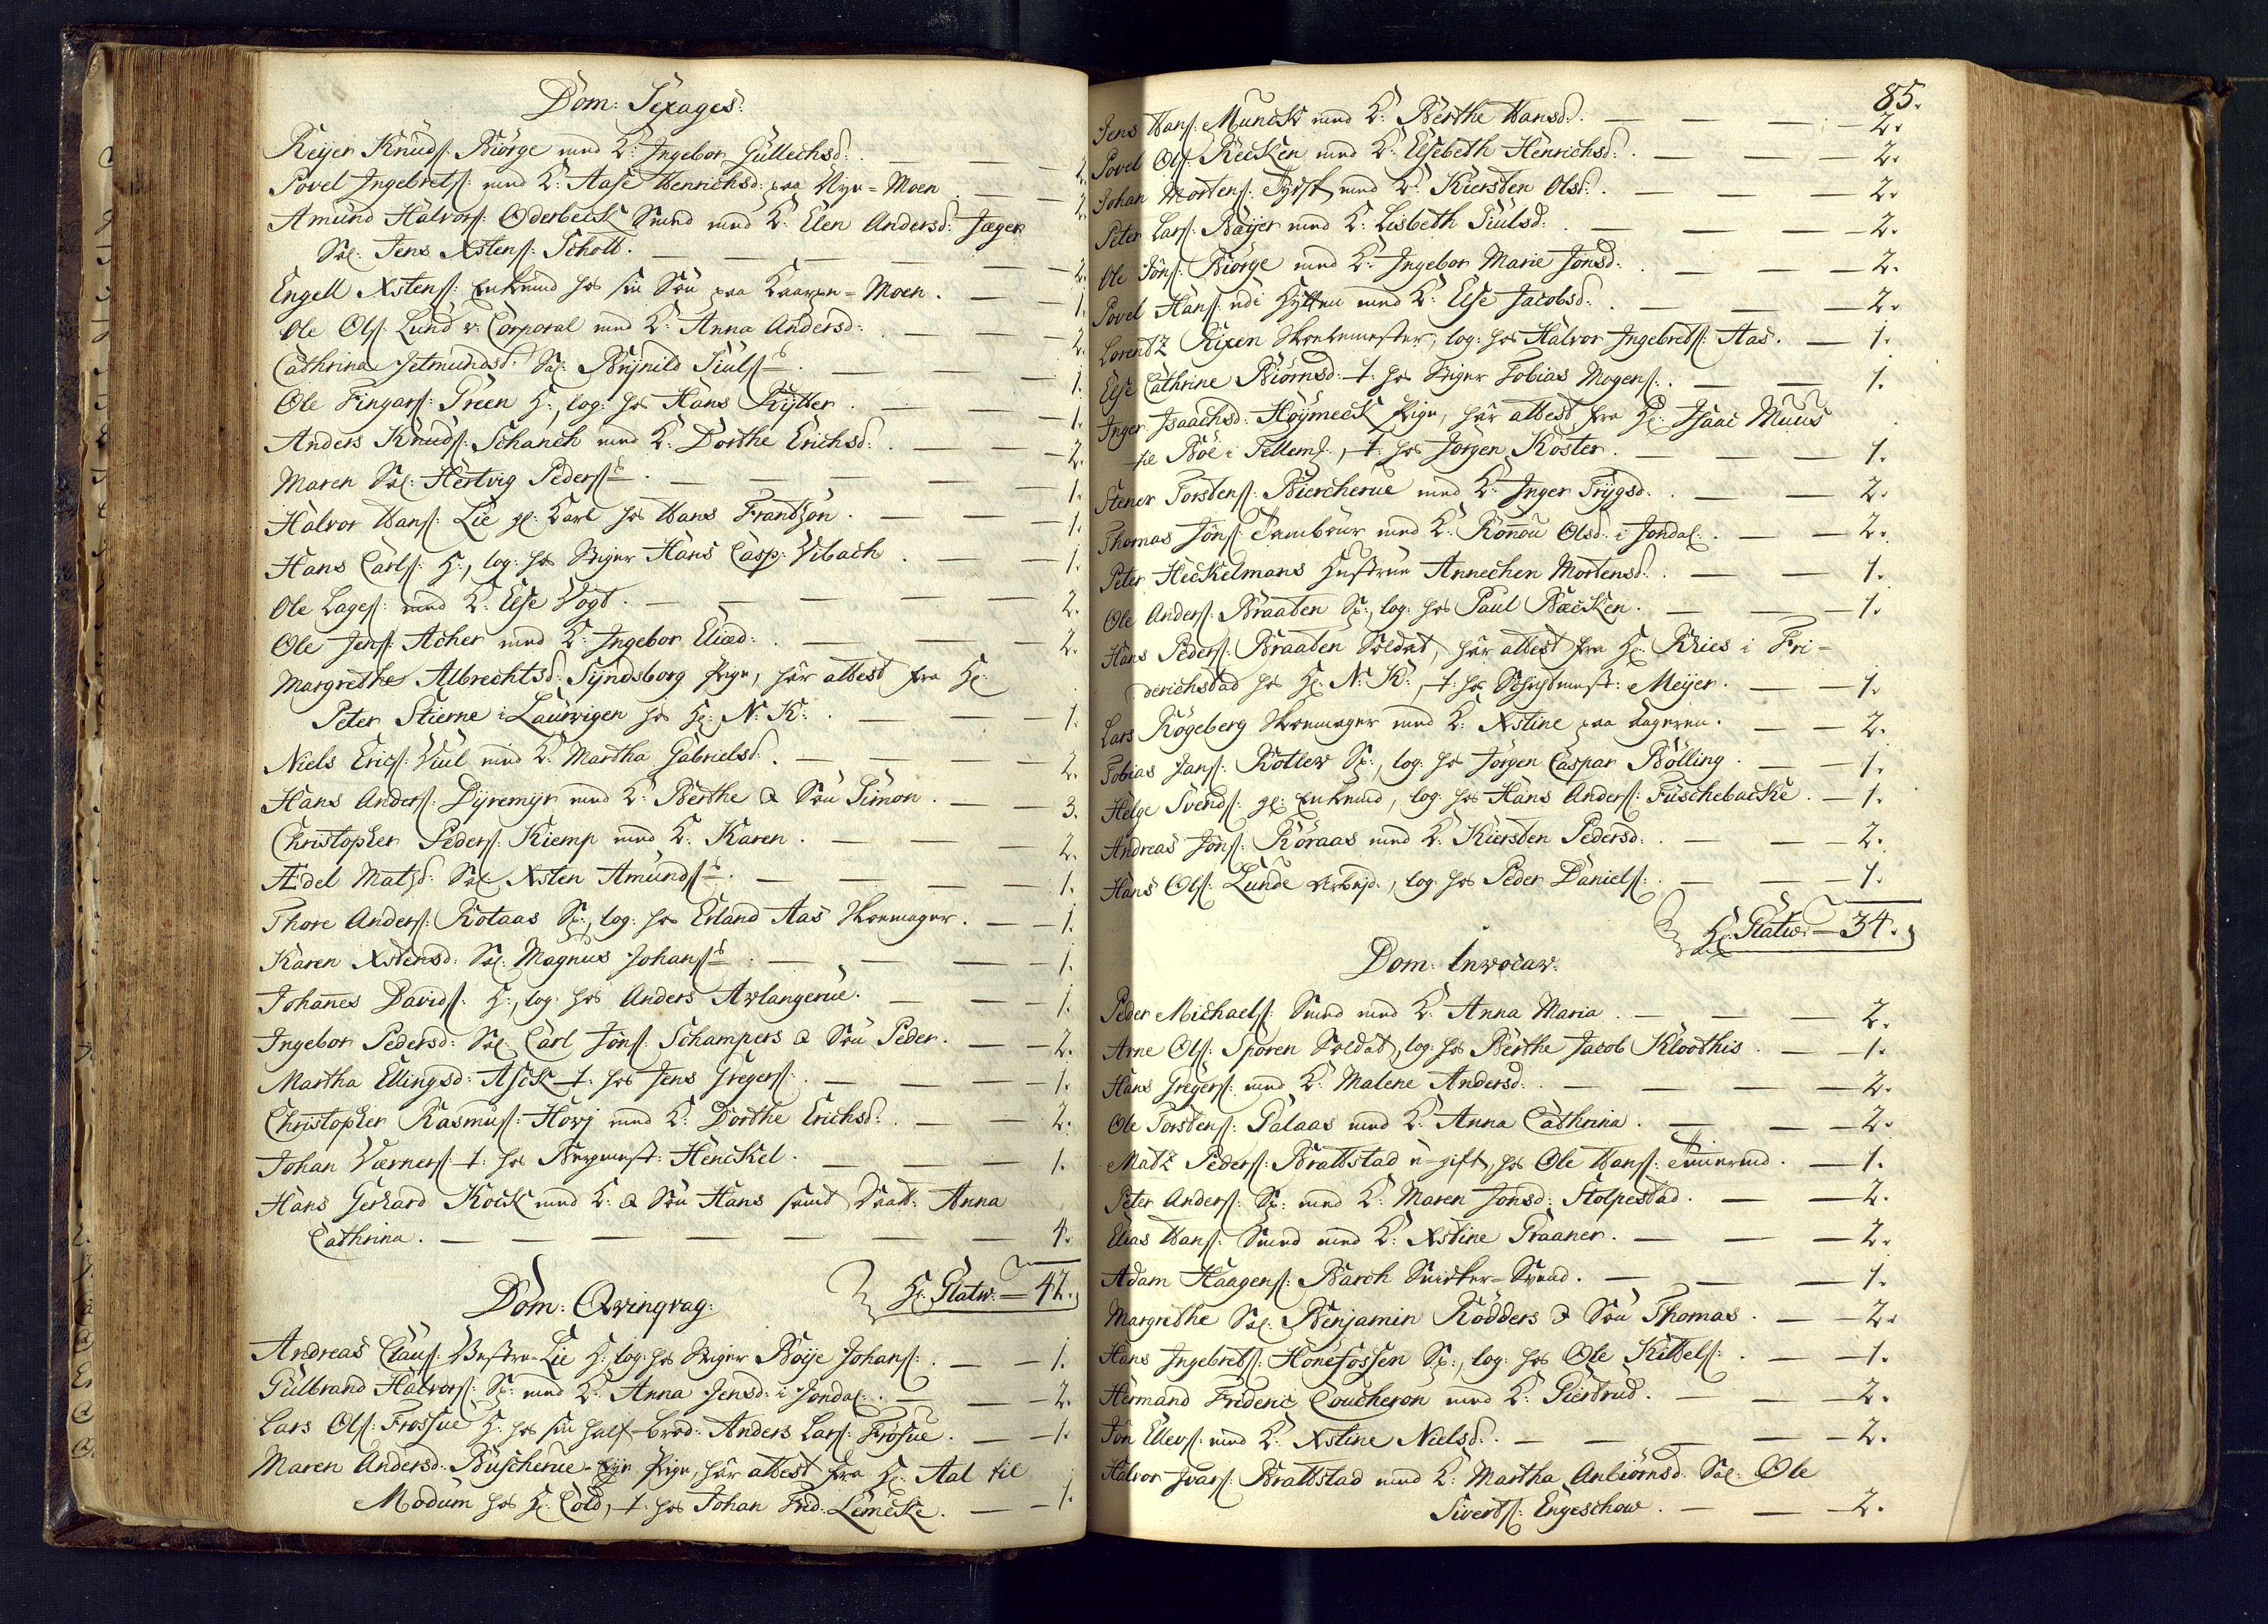 Dom: Sexages:
Reyer Knuds: Biörge med K: Ingebor Gullechsd: — — 2.
Povel Ingebrets: med K: Aase Henrichsd: paa Nye=Moen. — 2.
Amund Halvors: Oderbeck Smed med K: Elen Andersd: Jæger
Sal: Jens Xstens: Schott. — — — 2.
Engell Xstens: Enkemd hos sin Sön paa Moen. — 1.
Ole Ols: Lund v: Corporal med K: Anna Andersd: — 2.
Cathrina Jetmundsd: Sal: Brynild Siuls — — 1.
Ole Fingars: Preen H:, log: hos Hans Rytter. — 1.
Anders Knuds: Schanch med K: Dorthe Erichsd: — 2.
Maren Sal: Hertvig Peders — — 1.
Halvor Hans: Lie gl: Karl hos Hans Frantzon. — 1.
Hans Carls: H:, log: hos Stiger Hans Casp: Vibach — 1.
Ole Lages: med K: Else Vogt. — — 2.
Ole Jens: Acher med K: Ingebor Eliæd: — — 2.
Margrethe Albrechtsd: Syndsborg Pige, har attest fra Hr:
Peter Stierne i Laurvigen hos Hr: N: K: — — 1.
Niels Erics: Viul med K: Martha Gabrielsd: — — 2.
Hans Anders: Dyremyr med K: Berthe & Sön Simon. — 3.
Christopher Peders: Kiemp med K: Karen. — — 2.
Ædel Matzd: Sal: Xsten Amunds — — 1.
Thore Anders: Rotaas Sp:, log: hos Erland Aas Skomager. — 1.
Karen Xstensd: Sal: Magnus Johans — — 1.
Johañes Davids: H:, log: hos Anders Avlangerue. — 1.
Ingebor Pedersd: Sal: Carl Jöns: Schampers & Sön Peder. — 2.
Martha Ellingsd: Asck t: hos Jens Gregers: — — 1.
Christopher Rasmus: Hovj med K: Dorthe Erichsd: — 2.
Johan Værners: t: hos Bergmest: Henckel. — — 1.
Hans Gerhard Kock med K: & Sön Hans samt Datt: Anna
Cathrina. — — — 4.
Hr: Platu: — 42.
Dom: Qvinqvag:
Andreas Claus: Vestre=Lie H: log: hos Stiger Boye Johans: — 1.
Gulbrand Halvors: Sp: med K: Anna Jensd: i Jondal: — 2.
Lars Ols: Frossue H: hos sin half=brod: Anders Lars: Frosue. — 1.
Maren Andersd: Buscherue=Eje Pige, har attest fra Hr: Aal til
Modum hos Hr: Cold, t: hos Johan Frid: Lemeke. — 1.
85.
Jens Hans: Munck med K: Berthe Hansd: — — 2.
Povel Ols: Recken med K: Elsebeth Henrichsd: — — 2.
Johan Mortens: Tydsk med K: Kiersten Olsd: — — 2.
Peter Lars: Bayer med K: Lisbeth Siulsd: — — 2.
Ole Jöns: Biörge med K: Ingebor Marie Jonsd: — — 2.
Povel Hans: udi Hytten med K: Else Jacobsd: — — 2.
Lorentz Rixen Skolemester, log: hos Halvor Ingebrets: Aas. — 1.
Else Cathrine Biörnsd: t: hos Stiger Tobias Mogens: — 1.
Inger Isaachsd: Höymeck Pige, har attest fra Hr: Isaac Muus
til Böe i Tellem:, t: hos Jörgen Köster. — — 1.
Stener Torstens: Biercherue med K: Inger Trygsd: — 2.
Thomas Jöns: Tambour med K: Roñou Olsd: i Jondal: — 2.
Peter Heckelmans Hustrue Annechen Mortensd: — — 1.
Ole Anders: Braaten Sp:, log: hos Paul Bæcken. — — 1.
Hans Peders: Braaten Soldat, har attest fra Hr: Kries i Fri=
derichstad hos Hr: N: K:, t: hos Meyer. — 1.
Lars Rögeberg Skomager med K: Xstine paa Lageren. — 2.
Tobias Jans: Kotler Sp:, log: hos Jörgen Caspar Bölling. — 1.
Helge Svends: gl: Enkemd, log: hos Hans Anders: Fuschebacke. — 1.
Andreas Jöns: Röraas med K: Kiersten Pedersd: — — 2.
Hans Ols: Lunde Arbejd:, log: hos Peder Daniels: — — 1.
Hr: Platu: — 34.
Dom: Invocav:
Peder Michaels: Smed med K: Anna Maria. — — 2.
Arne Ols: Sporen Soldat, log: hos Berthe Jacob Kloothis — 1.
Hans Gregers: med K: Malene Andersd: — — 2.
Ole Torstens: Palaas med K: Anna Cathrina. — — 2.
Matz Peders: Brattstad u=gift, hos Ole Hans: Tömermd. — 1.
Peter Anders: Sp: med K: Maren Jonsd: Stolpestad. — 2.
Elias Hans: Smed med K: Xstine Praaner. — — 2.
Adam Haagens: Barch Snicker=Svend. — — 1.
Margrethe Sal: Benjamin Rödders & Sön Thomas. — 2.
Hans Ingebrets: Hönefossen Sp:, log: hos Ole Kittels: — 1.
Hermand Frideric Coucheron med K: Giertrud. — 2.
Jön Ellevs: med K: Xstine Nielsd: — — 2.
Halvor Ivars: Brattstad med K: Martha Anbiörnsd: Sal: Ole
Siverts: Engeschow. — — 2.